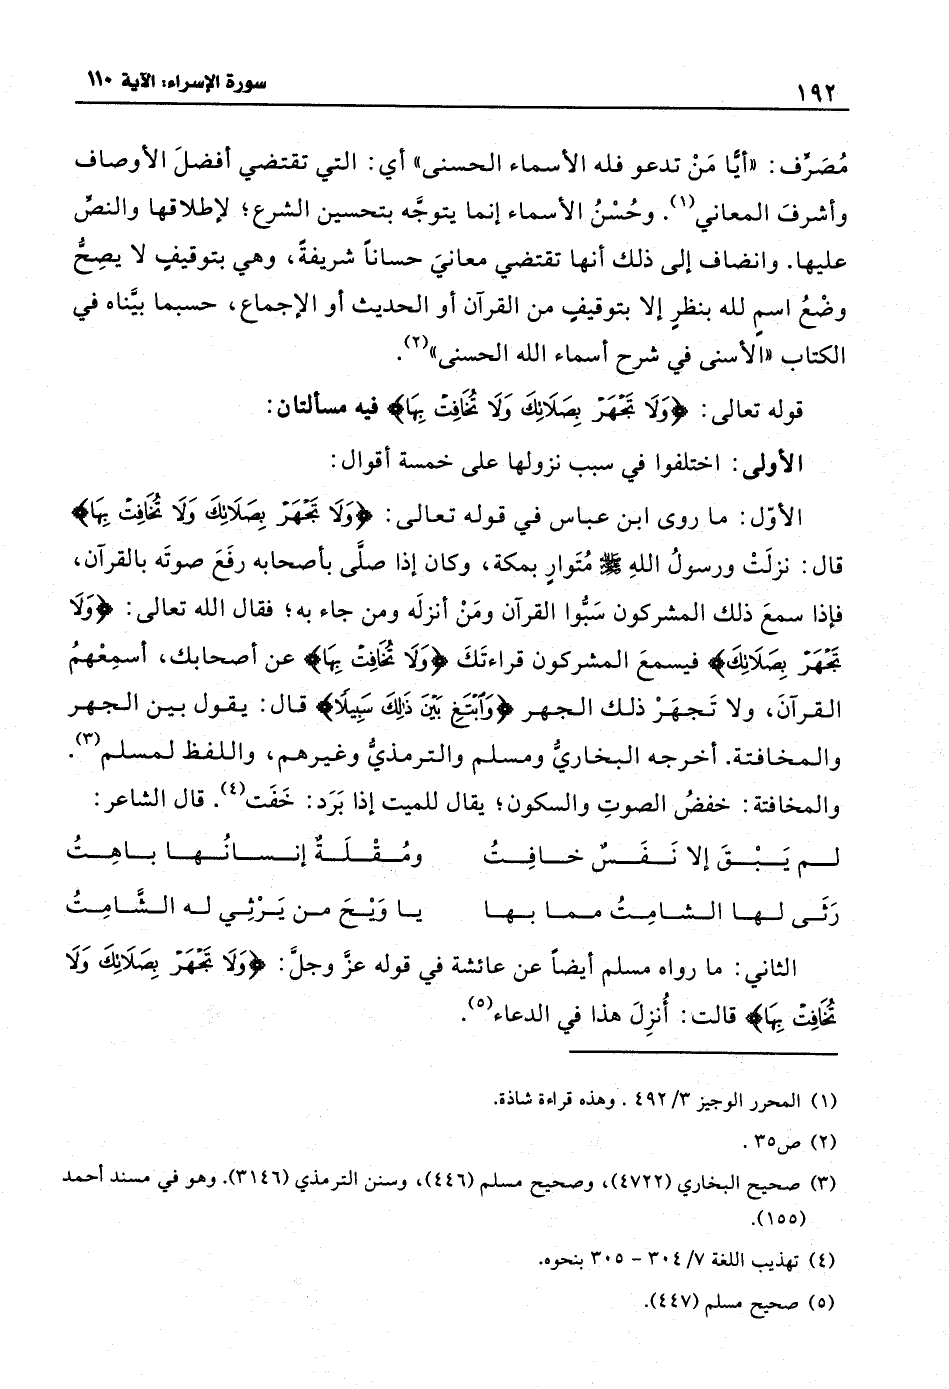 ١٩٢
سورة الإسراء: الآية ١١٠
مُصَرِّف: «أيًّا مَنْ تدعو فله الأسماء الحسنى» أي: التي تقتضي أفضلَ الأوصاف
وأشرفَ المعاني(١). وحُسْنُ الأسماء إنما يتوجَّه بتحسين الشرع؛ لإطلاقها والنصِّ
عليها. وانضاف إلى ذلك أنها تقتضي معانيَ حساناً شريفةً، وهي بتوقيفٍ لا يصِحُّ
وضْعُ اسمٍ لله بنظرٍ إلا بتوقيفٍ من القرآن أو الحديث أو الإجماع، حسبما بيَّناه في
الكتاب «الأسنى في شرح أسماء الله الحسنى»(٢).
قوله تعالى: ﴿وَلَا تَجْهَرْ بِصَلَاتِكَ وَلَا تُخَافِتْ بِهَا﴾ فيه مسألتان:
الأولى: اختلفوا في سبب نزولها على خمسة أقوال:
الأوّل: ما روى ابن عباس في قوله تعالى: ﴿وَلَا تَجْهَرْ بِصَلَاتِكَ وَلَا تُخَافِتْ بِهَا﴾
قال: نزلَتْ ورسولُ اللهِ ﷺ مُتَوارٍ بمكة، وكان إذا صلَّى بأصحابه رفَعَ صوتَه بالقرآن،
فإذا سمعَ ذلك المشركون سَبُّوا القرآن ومَنْ أنزلَه ومن جاء به؛ فقال الله تعالى: ﴿وَلَا
تَجْهَرْ بِصَلَاتِكَ﴾ فيسمعَ المشركون قراءتَكَ ﴿وَلَا تُخَافِتْ بِهَا﴾ عن أصحابك، أسمِعْهمُ
القرآنَ، ولا تَجهَرْ ذلك الجهر ﴿وَٱبْتَغِ بَيْنَ ذَلِكَ سَبِيلًا﴾ قال: يقول بين الجهر
والمخافتة. أخرجه البخاريُّ ومسلم والترمذيُّ وغيرهم، واللفظ لمسلم(٣).
والمخافتة: خفضُ الصوتِ والسكون؛ يقال للميت إذا بَرَد: خَفَت(٤). قال الشاعر:
لم يَبْقَ إلا نَفَسٌ خافِتُ ومُقْلَةٌ إنسانُها باهِتُ
رَثَى لها الشامِتُ مما بها يا وَيْحَ من يَرْثِي له الشَّامِتُ
الثاني: ما رواه مسلم أيضاً عن عائشة في قوله عزَّ وجلَّ: ﴿وَلَا تَجْهَرْ بِصَلَاتِكَ وَلَا
تُخَافِتْ بِهَا﴾ قالت: أُنزِلَ هذا في الدعاء(٥).
(١) المحرر الوجيز ٣/ ٤٩٢ . وهذه قراءة شاذة.
(٢) ص٣٥ .
(٣) صحيح البخاري (٤٧٢٢)، وصحيح مسلم (٤٤٦)، وسنن الترمذي (٣١٤٦). وهو في مسند أحمد
(١٥٥).
(٤) تهذيب اللغة ٧/ ٣٠٤ – ٣٠٥ بنحوه.
(٥) صحيح مسلم (٤٤٧).